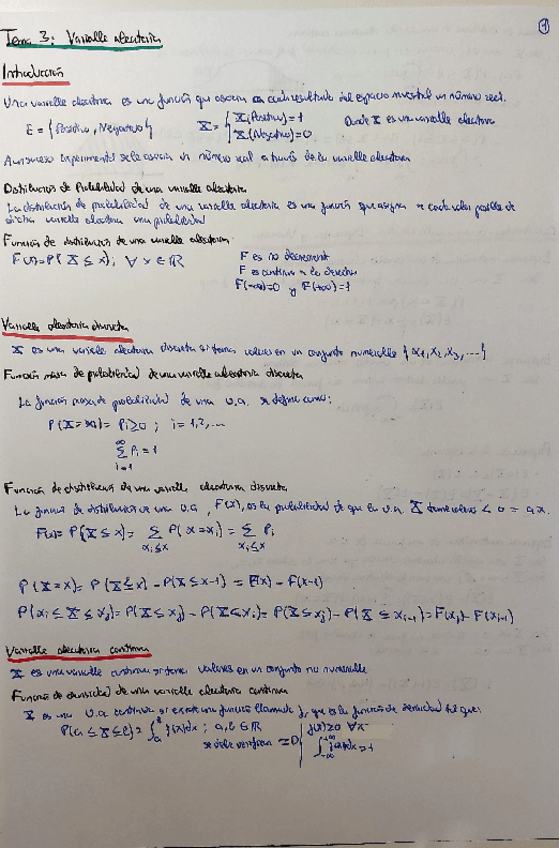 1
Tema 3: Variable aleatoria
Introducción
Una variable aleatoria es una función que asocia a cada resultado del espacio muestral un número real.
E = {Positivo, Negativo} X = { X(Positivo)=1 Donde X es una variable aleatoria
X(Negativo)=0
A un suceso experimental se le asocia un número real a través de la variable aleatoria
Distribución de Probabilidad de una variable aleatoria
La distribución de probabilidad de una variable aleatoria es una función que asigna a cada valor posible de
dicha variable aleatoria una probabilidad
Función de distribución de una variable aleatoria
F(x)=P(X≤x); ∀ x ∈ ℝ F es no decreciente
F es continua a la derecha
F(-∞)=0 y F(+∞)=1
Variable aleatoria discreta
X es una variable aleatoria discreta si toma valores en un conjunto numerable {x1, x2, x3, ...}
Función masa de probabilidad de una variable aleatoria discreta
La función masa de probabilidad de una v.a. se define como:
P(X=xi)= Pi≥0 ; i=1,2,...
∞
Σ Pi = 1
i=1
Función de distribución de una variable aleatoria discreta
La función de distribución de una v.a, F(x), es la probabilidad de que la v.a. X tome valores < o = a x.
F(x)= P(X≤x)= Σ P(X=xi) = Σ Pi
xi≤x xi≤x
P(X=x)= P(X≤x) - P(X≤x-1) = F(x) - F(x-1)
P(xi ≤ X ≤ xj)= P(X≤xj) - P(X<xi)= P(X≤xj) - P(X ≤ xi-1)= F(xj) - F(xi-1)
Variable aleatoria continua
X es una variable continua si toma valores en un conjunto no numerable
Función de densidad de una variable aleatoria continua
X es una v.a continua si existe una función llamada f, que es la función de densidad tal que:
P(a ≤ X ≤ b) = ∫ab f(x)dx ; a,b ∈ ℝ | f(x)≥0 ∀x
se debe verificar ∫-∞+∞ f(x)dx=1